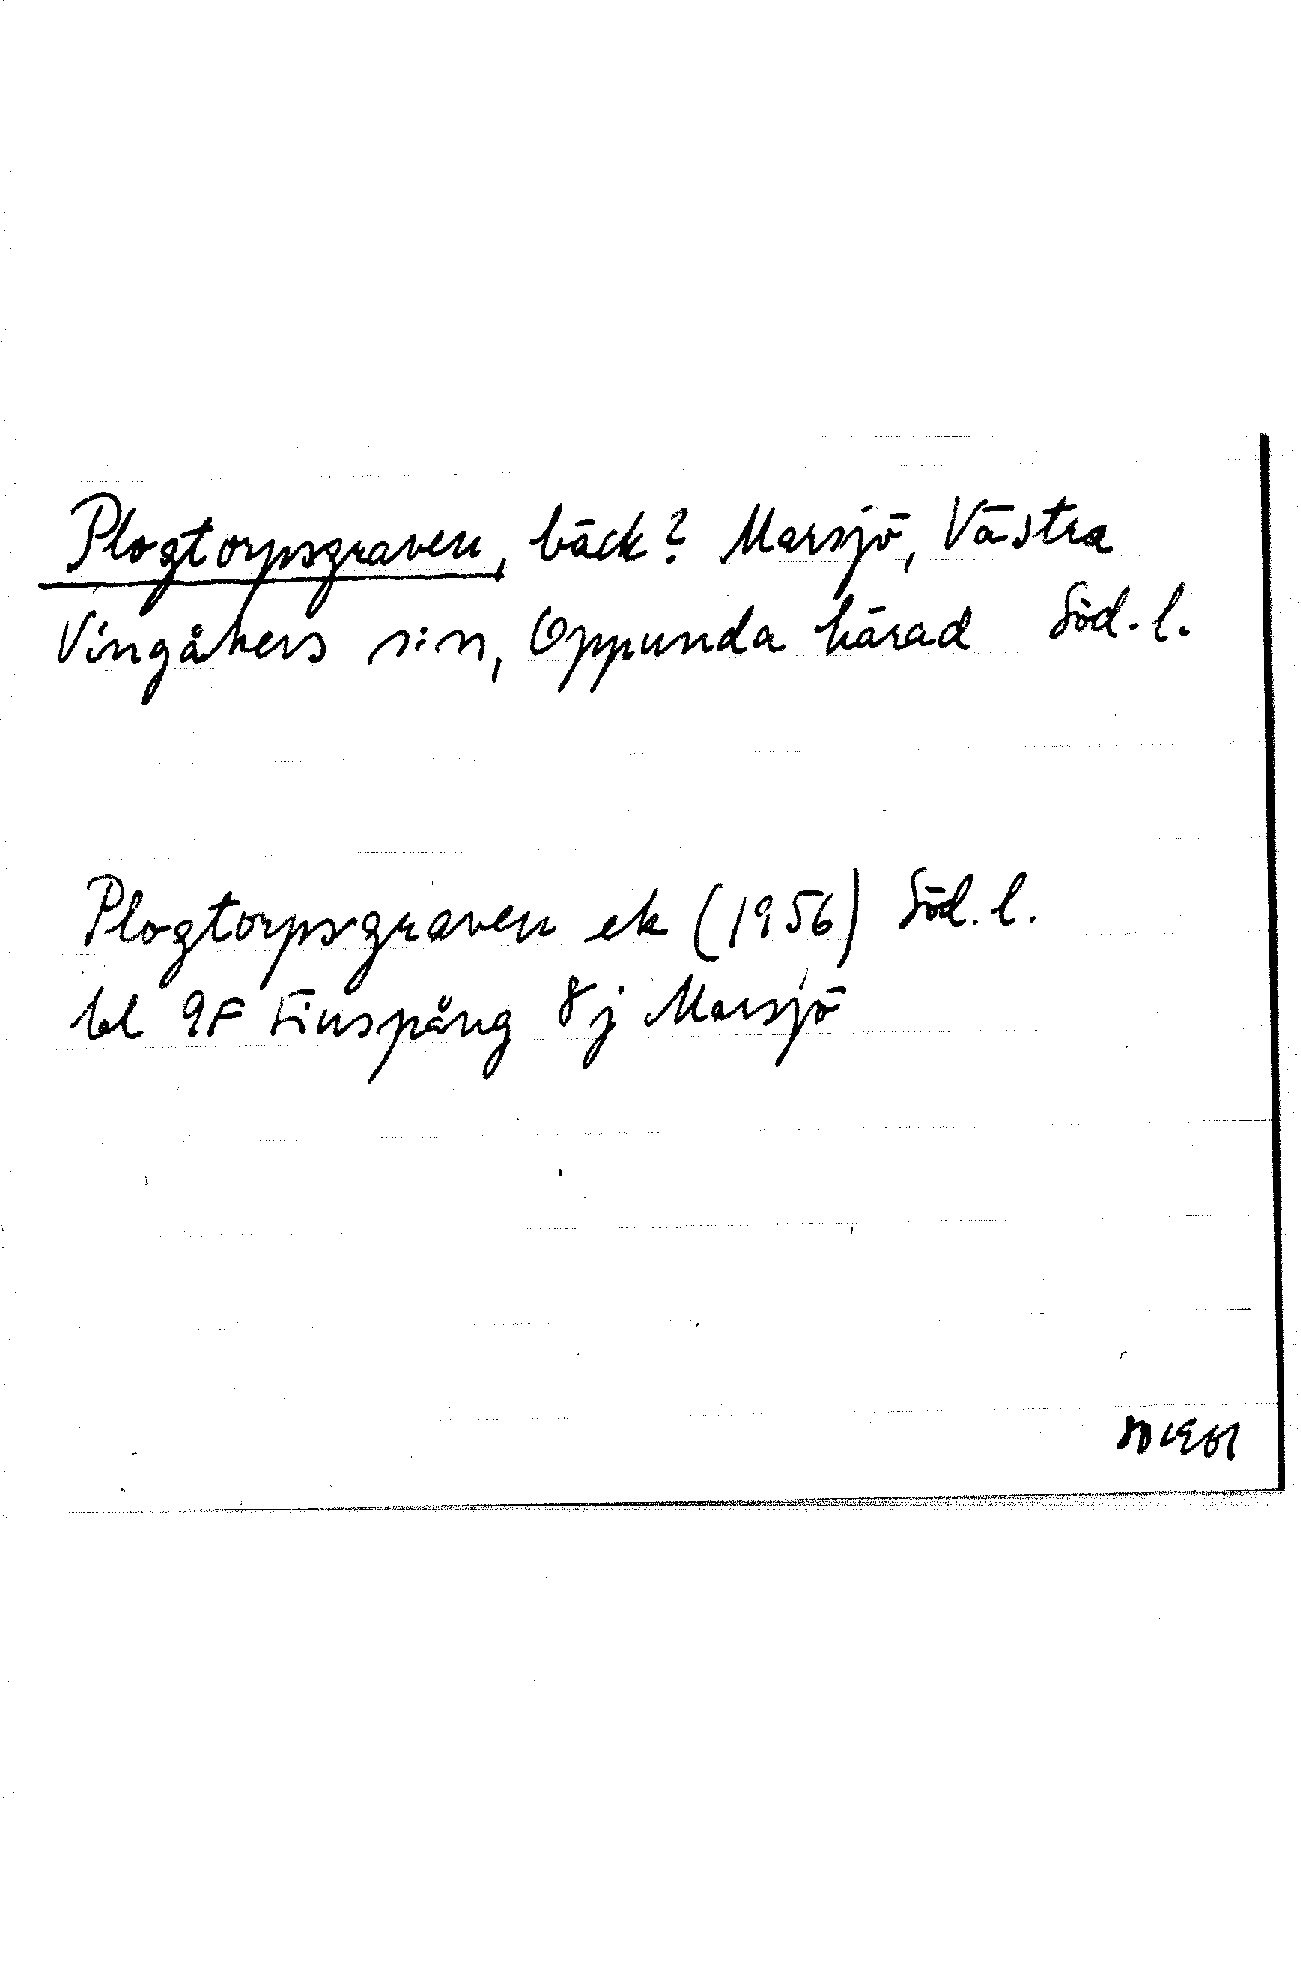 Plogtorpsgraven, bäck? Marsjö, Västra
Vingåkers s:n, Oppunda härad Söd. l.
Plogtorpsgraven ek (1956) Söd. l.
bl 9F Finspång 8j Marsjö